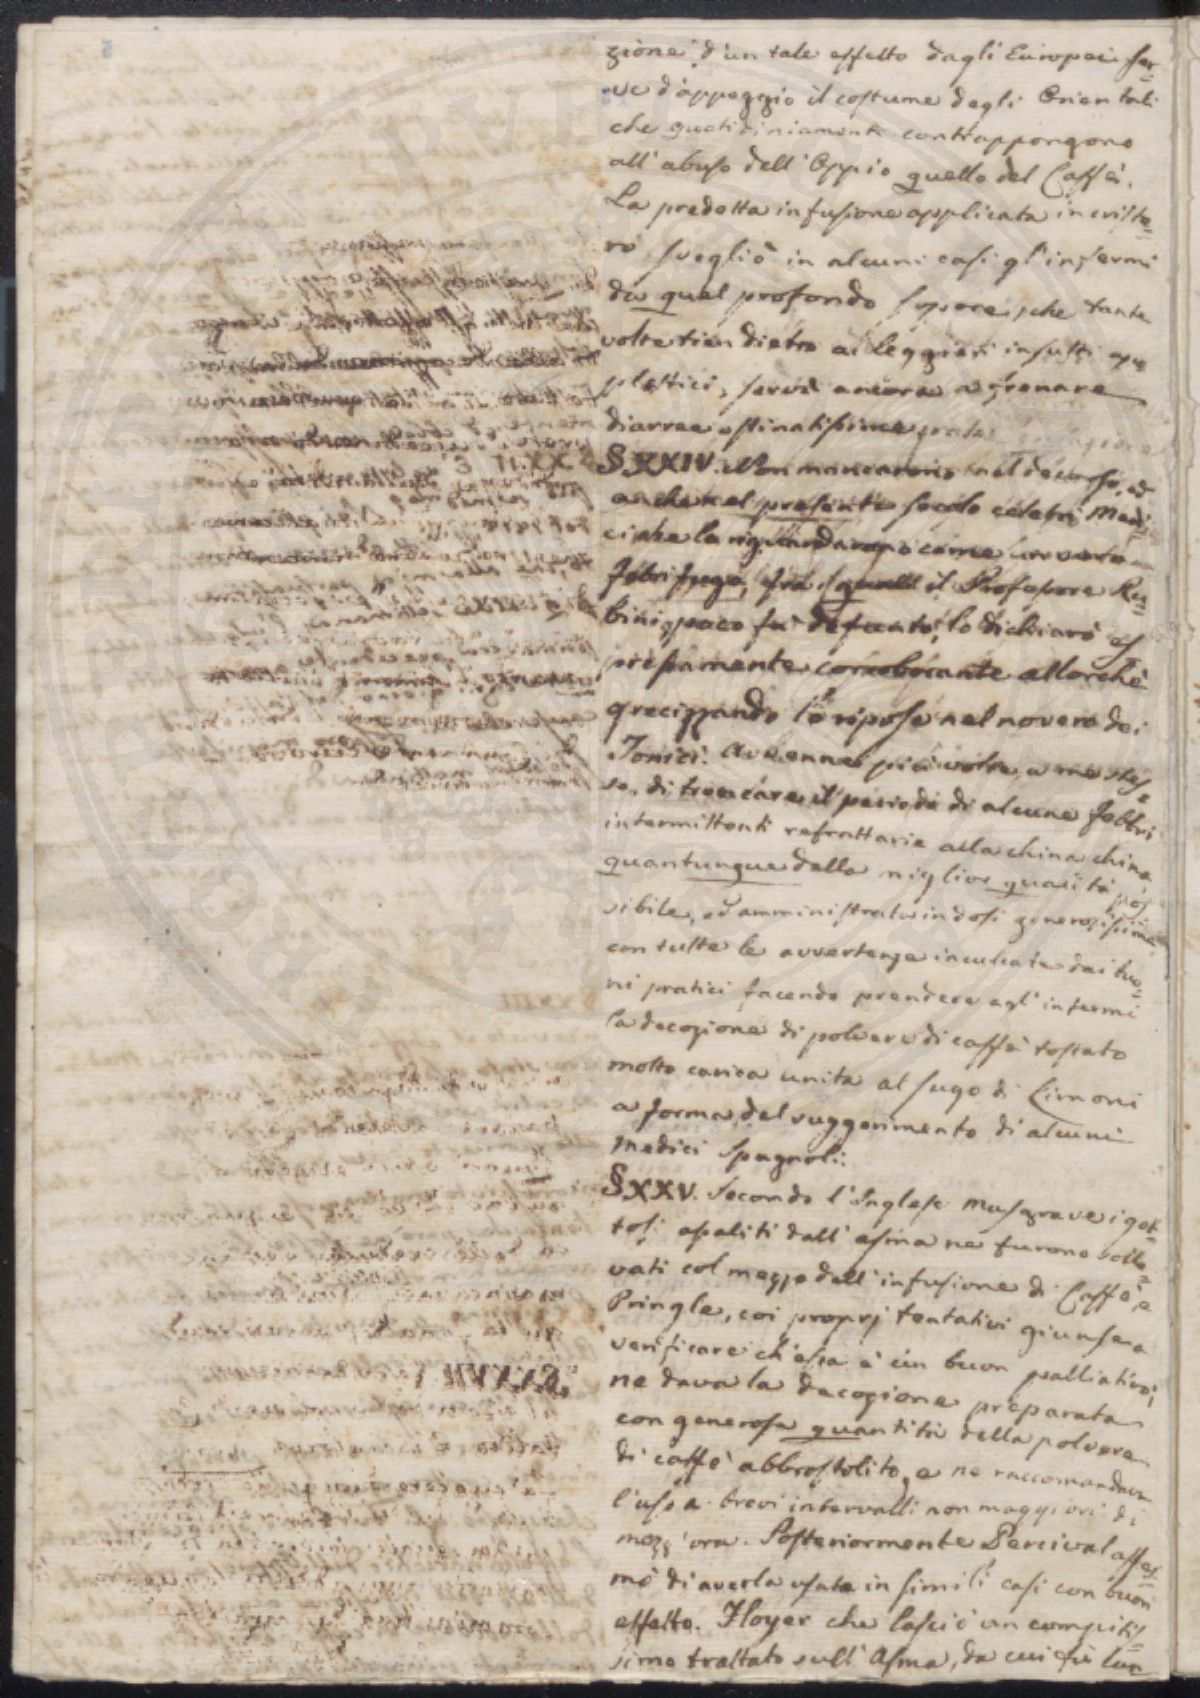 zione d'un tale effetto dagli Europei ser=
ve d'appoggio il costume degli Orientali
che quotidiniamente contrappongono
all'abuso dell'Oppio quello del Caffè.
La predetta infusione applicata in criste=
ro svegliò in alcuni casi gl'infermi
da quel profondo sopore, che tante
volte tien dietro ai leggieri insulti apo
pletici, servì ancora a frenare
diarree ostinatissime
§ XXIV. Non mancarono nel decorso, ed
anche nel presente secolo celebri Medi=
ci che lo riguardarono come un vero
febrifugo, fra i quali il Professore Ru=
bini poco fu' defunto, lo dichiarò es
pressamente corroborante allorchè
grecizzando lo ripose nel novero dei
Tonici. Avvenne più volte a me stes=
so, di troncare il periodo di alcune febbri
intermittenti refrattarie alla china china
quantunque della miglior qualità pos
sibile, ed amministrata in dosi generosissime
con tutte le avvertenze inculcate dai buo=
ni pratici facendo prendere agl'infermi
la decozione di polvere di caffè tostato
molto carica unita al sugo di Limoni
a forma del suggerimento di alcuni
Medici Spagnoli.
§ XXV. Secondo l'Inglese Musgrave i got=
tosi assaliti dall'asma ne furono solle=
vati col mezzo dell'infusione di Caffè, e
Pringle, coi proprj tentativi giunse a
verificare ch'essa è un buon palliativo;
ne dava la decozione preparata
con generosa quantità della polvere
di caffè abbrostolito, e ne raccomandava
l'uso a brevi intervalli non maggiori di
mezz'ora. Posteriormente Percival affer=
mò di averla usata in simili casi con buon
effetto. Floyer che lasciò un compitis=
simo trattato sull'Asma, da cui fù lun